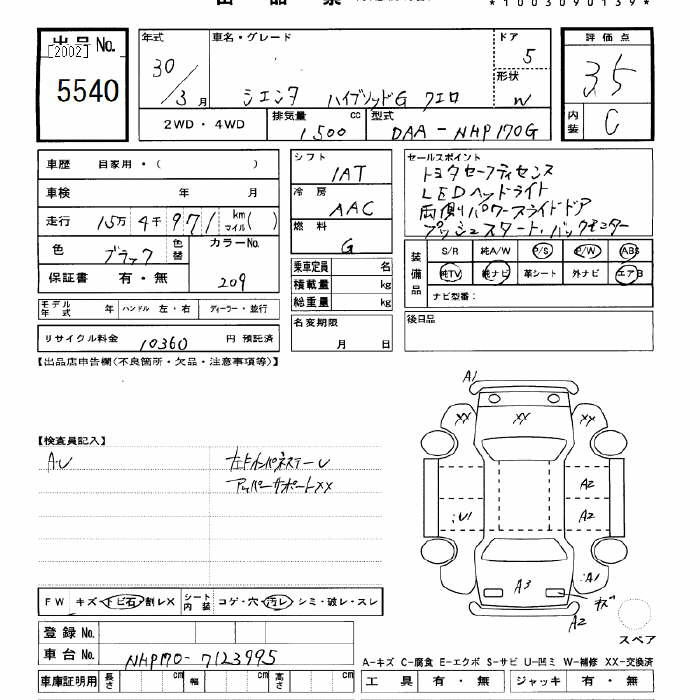 *1003090139*
出品No. 年式 車名・グレード ドア 評価点
[2002]
5540
30/3月 シエンタ ハイブリッドG クエロ 5 3.5
形状 W
2WD・4WD 排気量 1500 cc 型式 DAA-NHP170G 内装 C
車歴 自家用・( )
車検 年 月
走行 15万4千971 km マイル( )
色 ブラック 色替 カラーNo. 209
保証書 有・無
モデル年式 年 ハンドル 左・右 ディーラー・並行
リサイクル料金 10360 円 預託済
シフト IAT
冷房 AAC
燃料 G
乗車定員 名
積載量 kg
総重量 kg
名変期限
月 日
セールスポイント
トヨタセーフティセンス
LEDヘッドライト
両側パワースライドドア
プッシュスタート、バックモニター
装備品 S/R 純A/W P/S P/W ABS
純TV 純ナビ 革シート 外ナビ エアB
ナビ型番:
後日品
【出品店申告欄(不良箇所・欠品・注意事項等)】
【検査員記入】
A・U
アッパーサポートXX
A1
XX XX XX
A2
:U1 A2
A3 :A1
キズ
A2
スペア
FW キズ・トビ石・割レX シート内装 コゲ・穴・汚レ・シミ・破レ・スレ
登録No.
車台No. NHP170-7123995
車庫証明用 長さ cm 幅 cm 高さ cm
A-キズ C-腐食 E-エクボ S-サビ U-凹ミ W-補修 XX-交換済
工具 有・無 ジャッキ 有・無